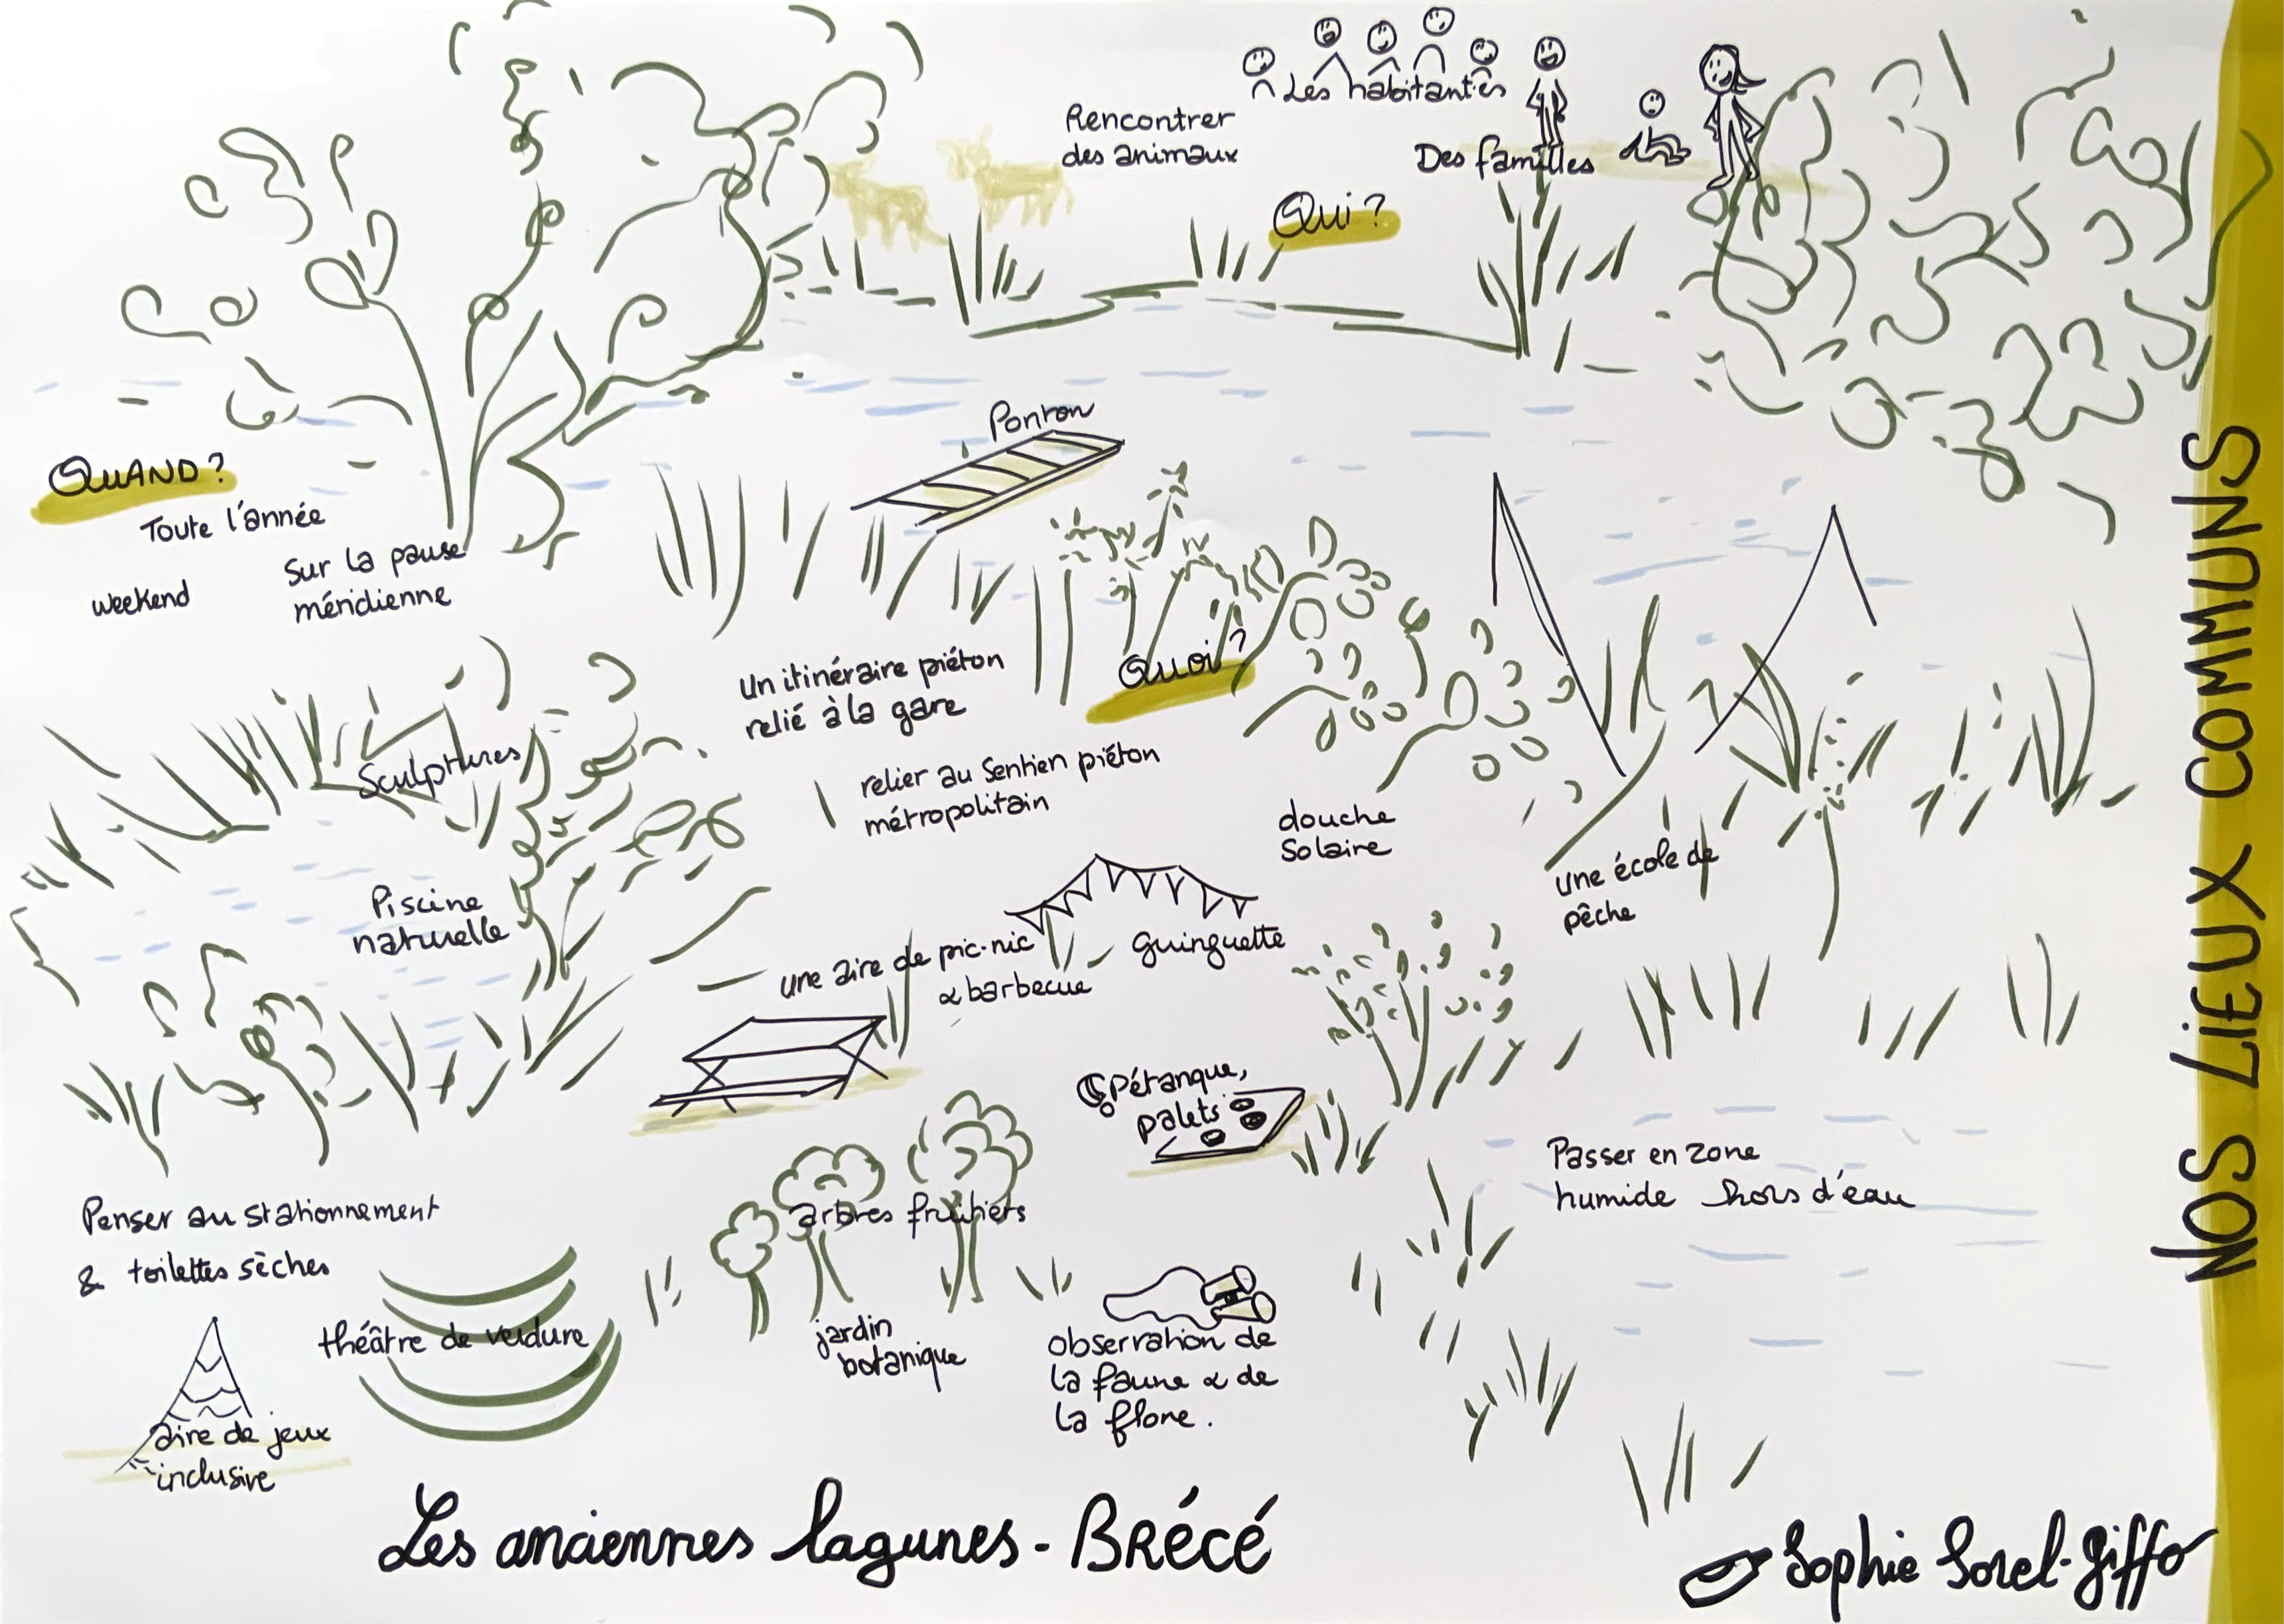 Les habitantes
Rencontrer
des animaux
Des familles
Qui ?
Ponton
QUAND ?
Toute l'année
Sur la pause
méridienne
weekend
Quoi ?
Un itinéraire piéton
relié à la gare
relier au Sentier piéton
métropolitain
Sculptures
douche
Solaire
une école de
pêche
Piscine
naturelle
une aire de pic-nic
& barbecue
guinguette
Pétanque,
palets
Passer en zone
humide hors d'eau
Penser au stationnement
& toilettes sèches
arbres fruitiers
théâtre de verdure
jardin
botanique
observation de
la faune & de
la flore.
aire de jeux
inclusive
Les anciennes lagunes - BRÉCÉ
Sophie Sorel-Giffo
NOS LIEUX COMMUNS